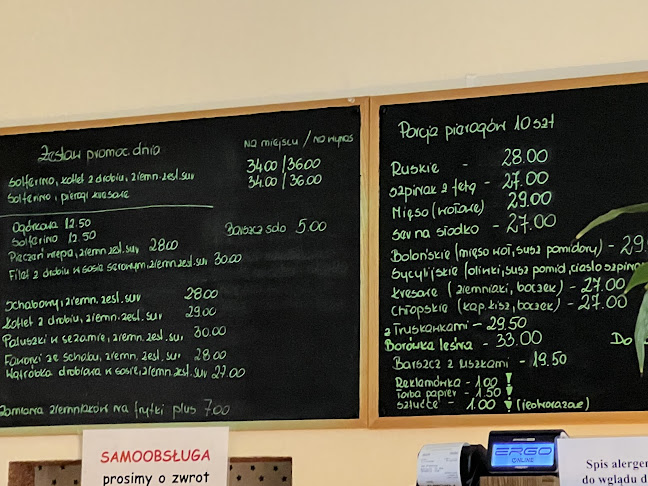 Zestaw promoc. dnia
na miejscu / na wynos
Solferino, kotlet z drobiu, ziemn. zest. sur
34.00 / 36.00
Solferino, pierogi kresowe
34.00 / 36.00
Ogórkowa 12.50
Solferino 12.50
Barszcz solo 5.00
Pieczeń rzep, ziemn. zest. sur 28.00
Filet z drobiu w sosie serowym, ziemn. zest. sur 30.00
Schabowy, ziemn. zest. sur 28.00
Kotlet z drobiu, ziemn. zest. sur 29.00
Paluszki w sezamie, ziemn. zest. sur 30.00
ze schabu, ziemn. zest. sur 28.00
Wątróbka drobiowa w sosie, ziemn. zest. sur 27.00
Zamiana ziemniaków na frytki plus 7.00
Porcja pierogów 10 szt
Ruskie - 28.00
Szpinak z fetą - 27.00
Mięso (wołowe) 29.00
Ser na słodko - 27.00
Bolońskie (mięso woł, susz pomidory) - 29.
Sycylijskie (oliwki, susz pomid, ciasto szpinak
Kresowe (ziemniaki, boczek) - 27.00
Chłopskie (kap. kisz, boczek) - 27.00
z Truskawkami - 29.50
Borówka leśna - 33.00
Do
Barszcz z uszkami - 19.50
Reklamówka - 1.00 !
Torba papier - 1.50 !
Sztućce - 1.00 !
SAMOOBSŁUGA
prosimy o zwrot
ERGO
ONLINE
Spis alerge
do wglądu d